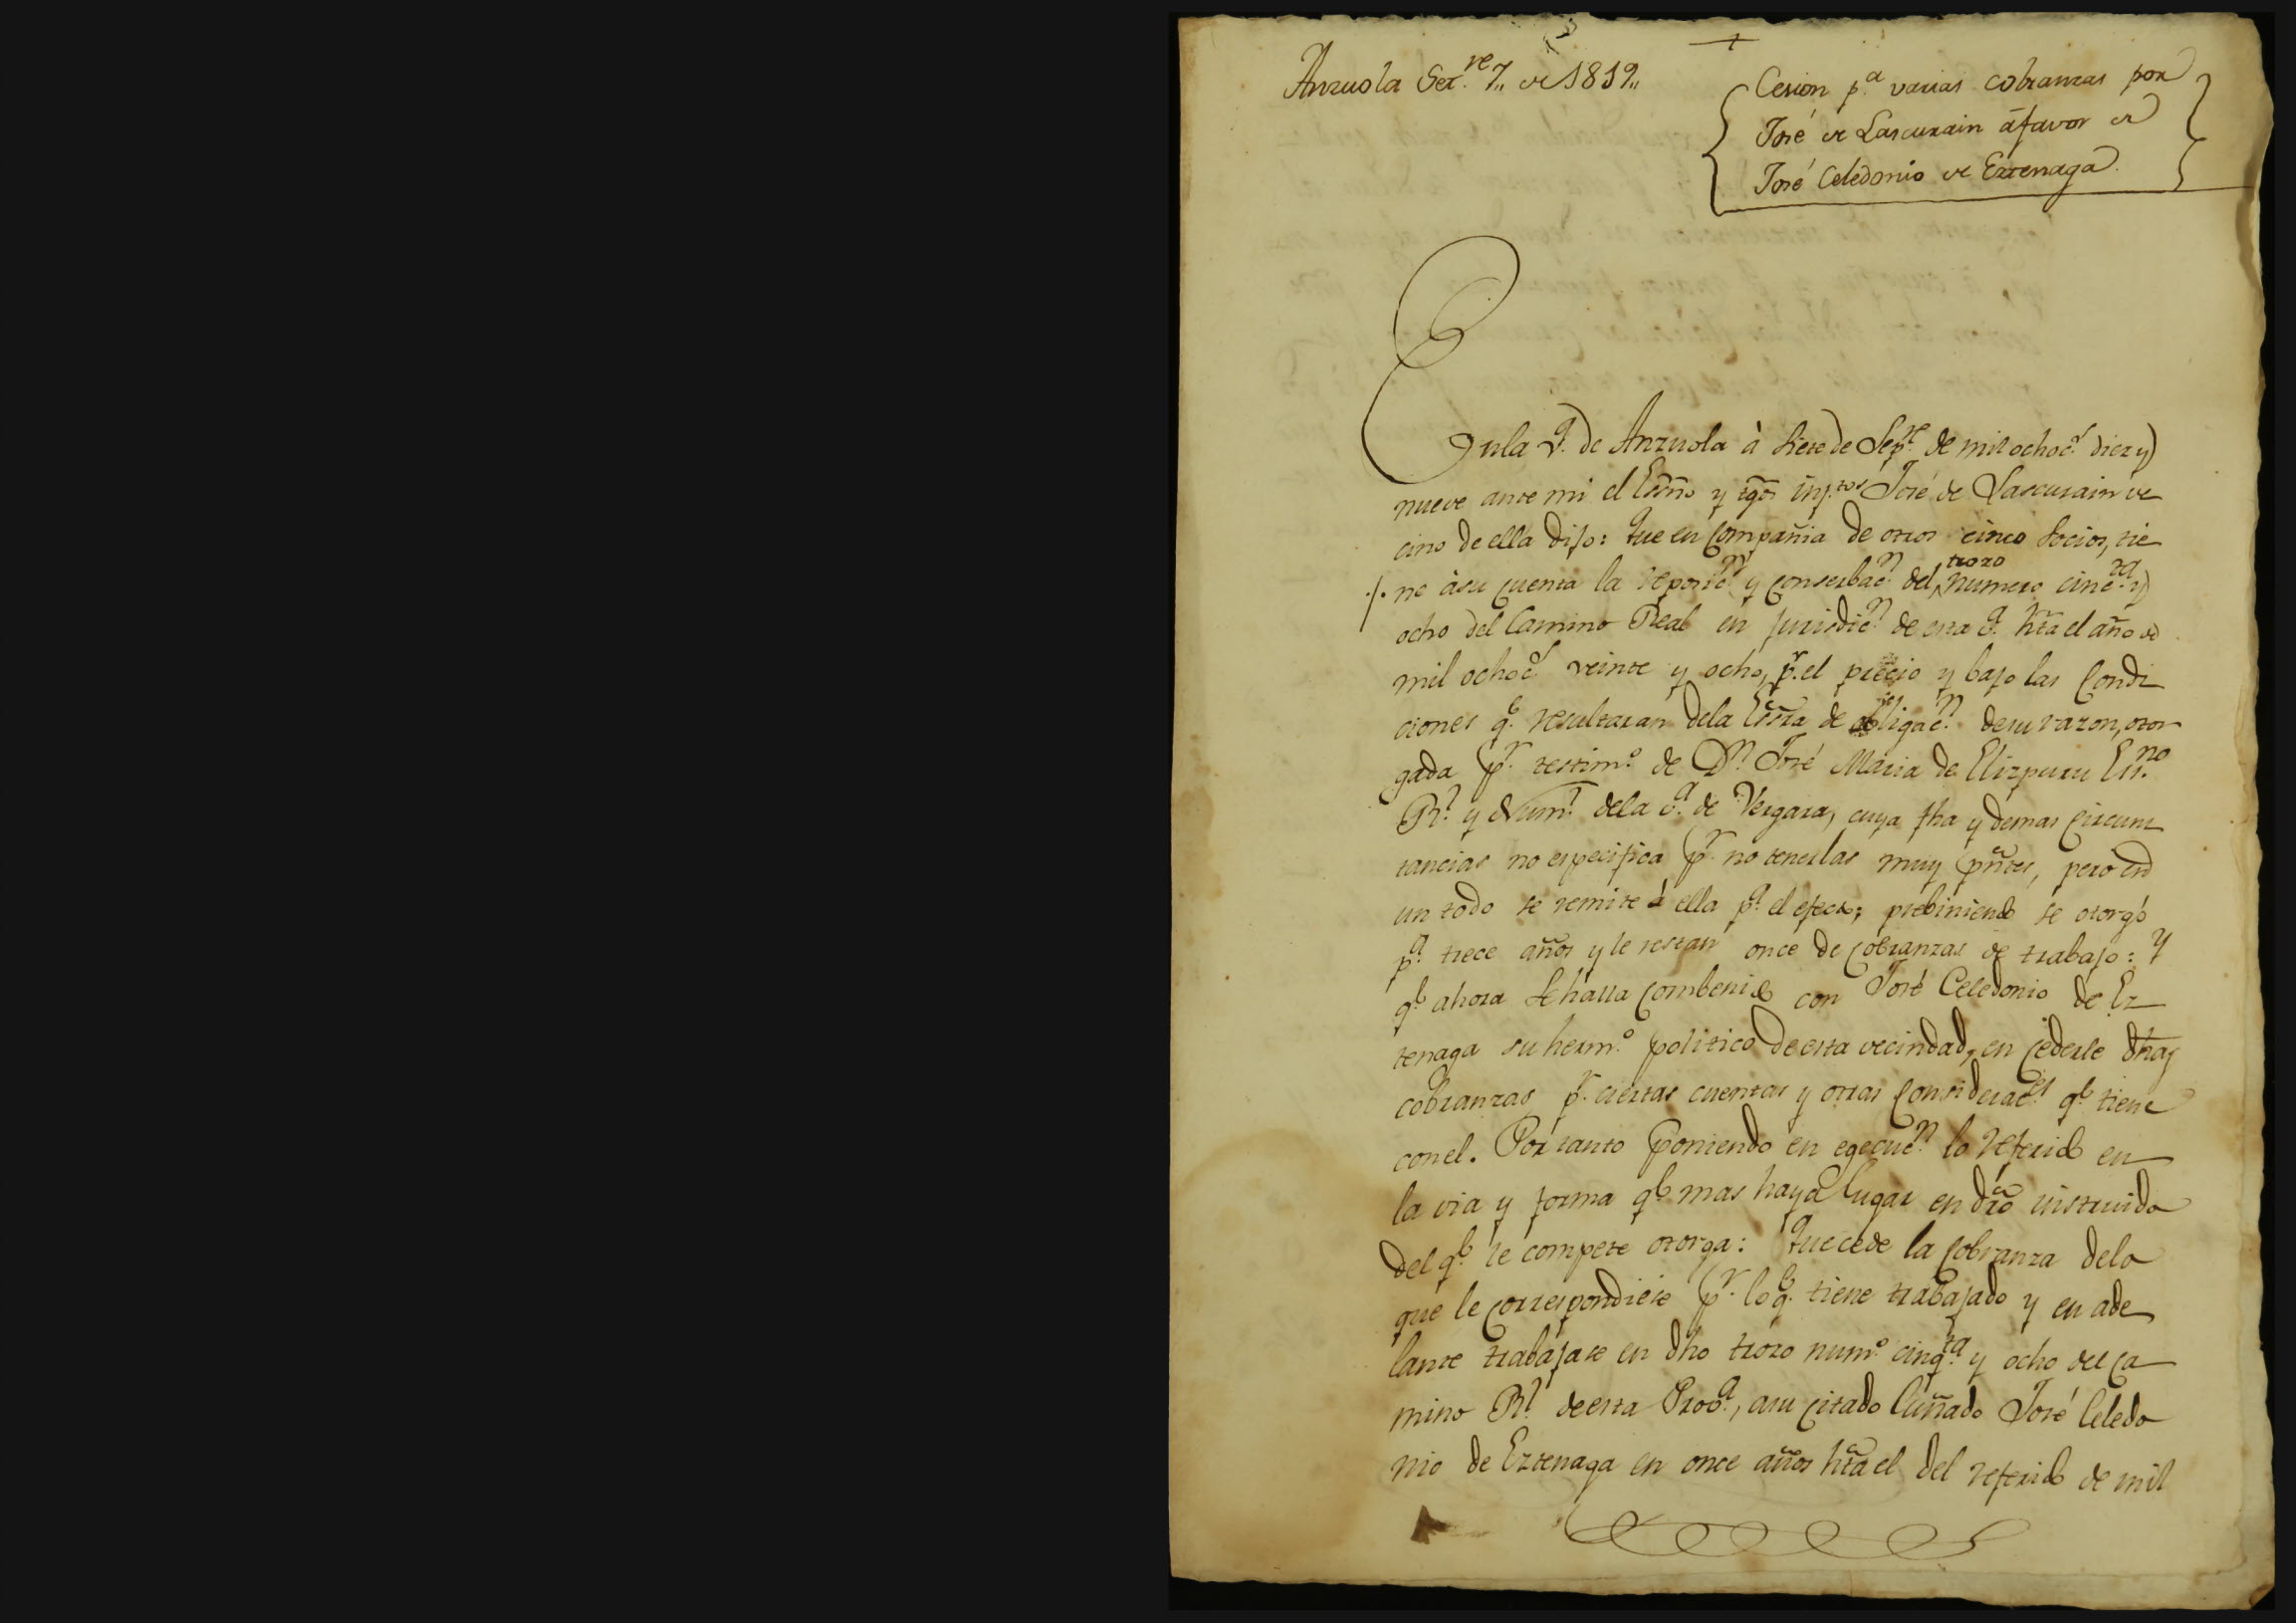 Anzuola Set.re 7,, de 1819,,
Cesion p.a varias cobranzas por
José de Lascurain á favor de
José Celedonio de Eztenaga.
En la V.a de Anzuola à siete de Sep.re de mil ochoc.s diez y
nueve ante mi el Essno y tgos inf.tos José de Lascurain ve
cino de ella dijo: Que en Compañia de otros cinco Socios, tie
ne à su cuenta la reposic.n y conserbac.n del, trozo numero cinc.ta y
ocho del Camino Real en jurisdic.n de esta v.a hta el año de
mil ochoc.s veinte y ocho, p.r el precio y bajo las Condi
ciones q.e resultaran dela Essra de obligac.n de su razon, otor
gada p.r testim.o de D.n José Maria de Elizpuru Es.no
R.l y Num.l dela v.a de Vergara, cuya fha y demas Circuns
tancias no especifica p.r no tenerlas muy pñtes, pero en
un todo se remite á ella p.a el efecto; prebiniendo se otorgó
p.a trece años y le restan once de Cobranzas de trabajo: Y
q.e ahora se halla Combenido con José Celedonio de Ez
tenaga su herm.o politico de esta vecindad, en cederle dhas
cobranzas p.r ciertas cuentas y otras Considerac.es q.e tiene
con el. Por tanto poniendo en egecuc.n lo referido en
la via y forma q.e mas haya lugar en dro instruido
del q.e le compete otorga: Que cede la Cobranza delo
que le Correspondiese p.r lo q.e tiene trabajado y en ade
lante trabajase en dho trozo num.o cinq.ta y ocho del Ca
mino R.l de esta Prov.a, a su citado Cuñado José Celedo
nio de Eztenaga en once años hta el del referido de mil